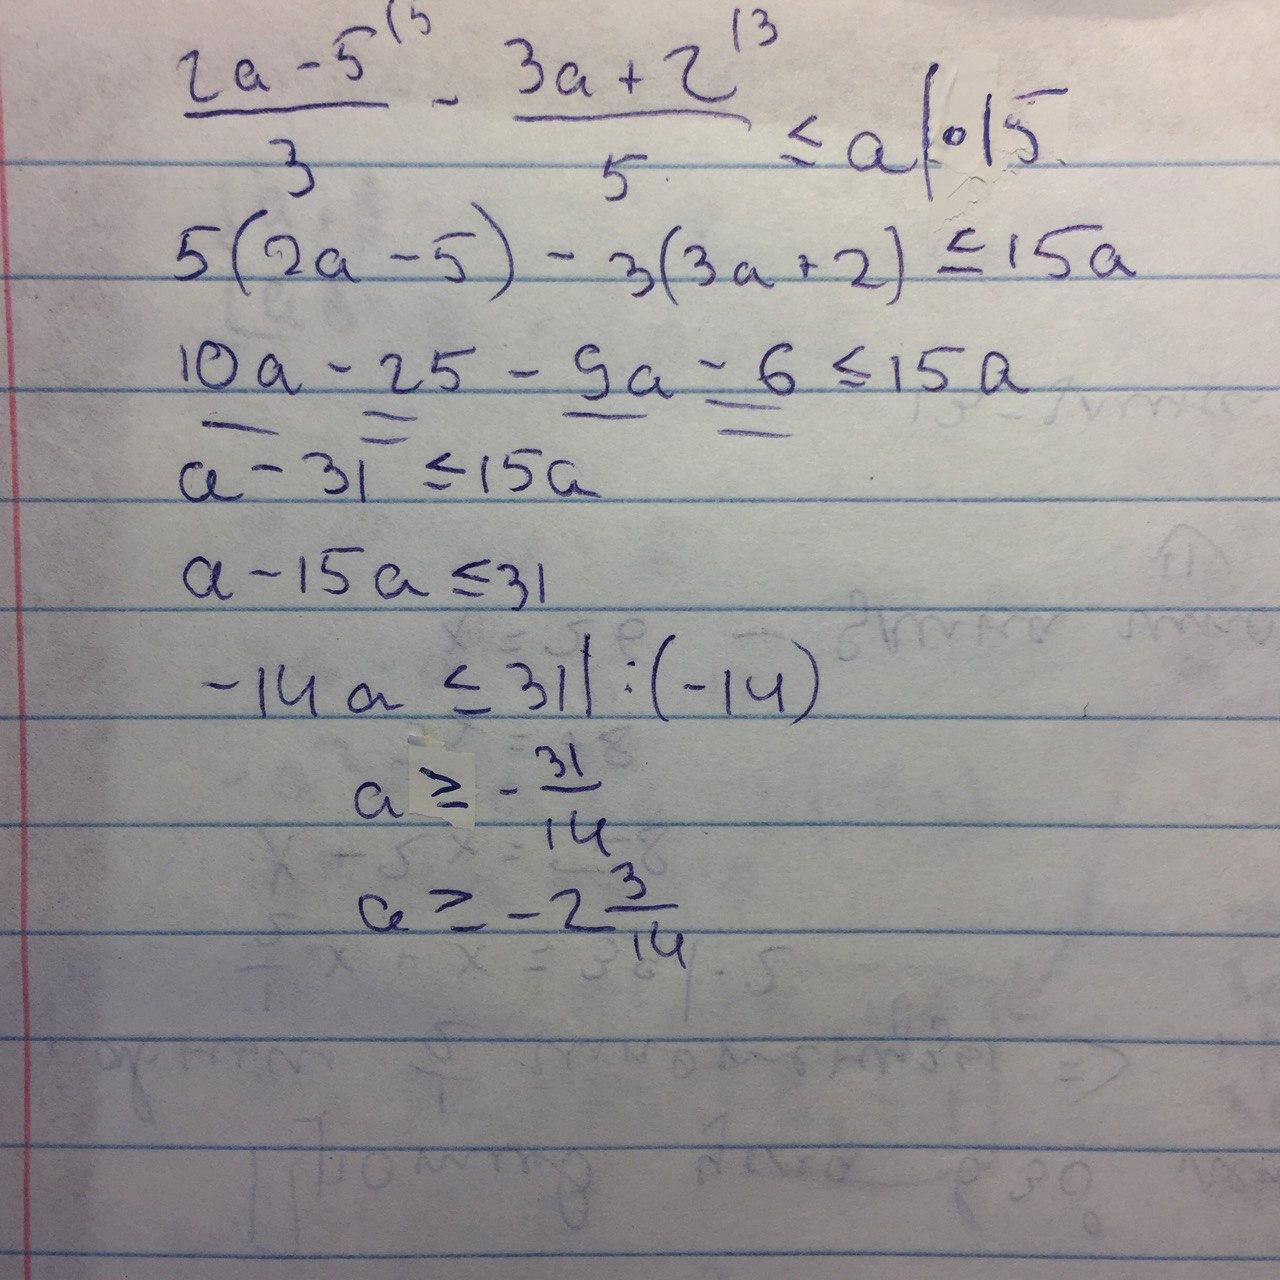 (2a - 5)/3 ⁽⁵ - (3a + 2)/5 ⁽³ ≤ a | · 15
5(2a - 5) - 3(3a + 2) ≤ 15a
10a - 25 - 9a - 6 ≤ 15a
a - 31 ≤ 15a
a - 15a ≤ 31
-14a ≤ 31 | : (-14)
a ≥ - 31/14
a ≥ - 2 3/14